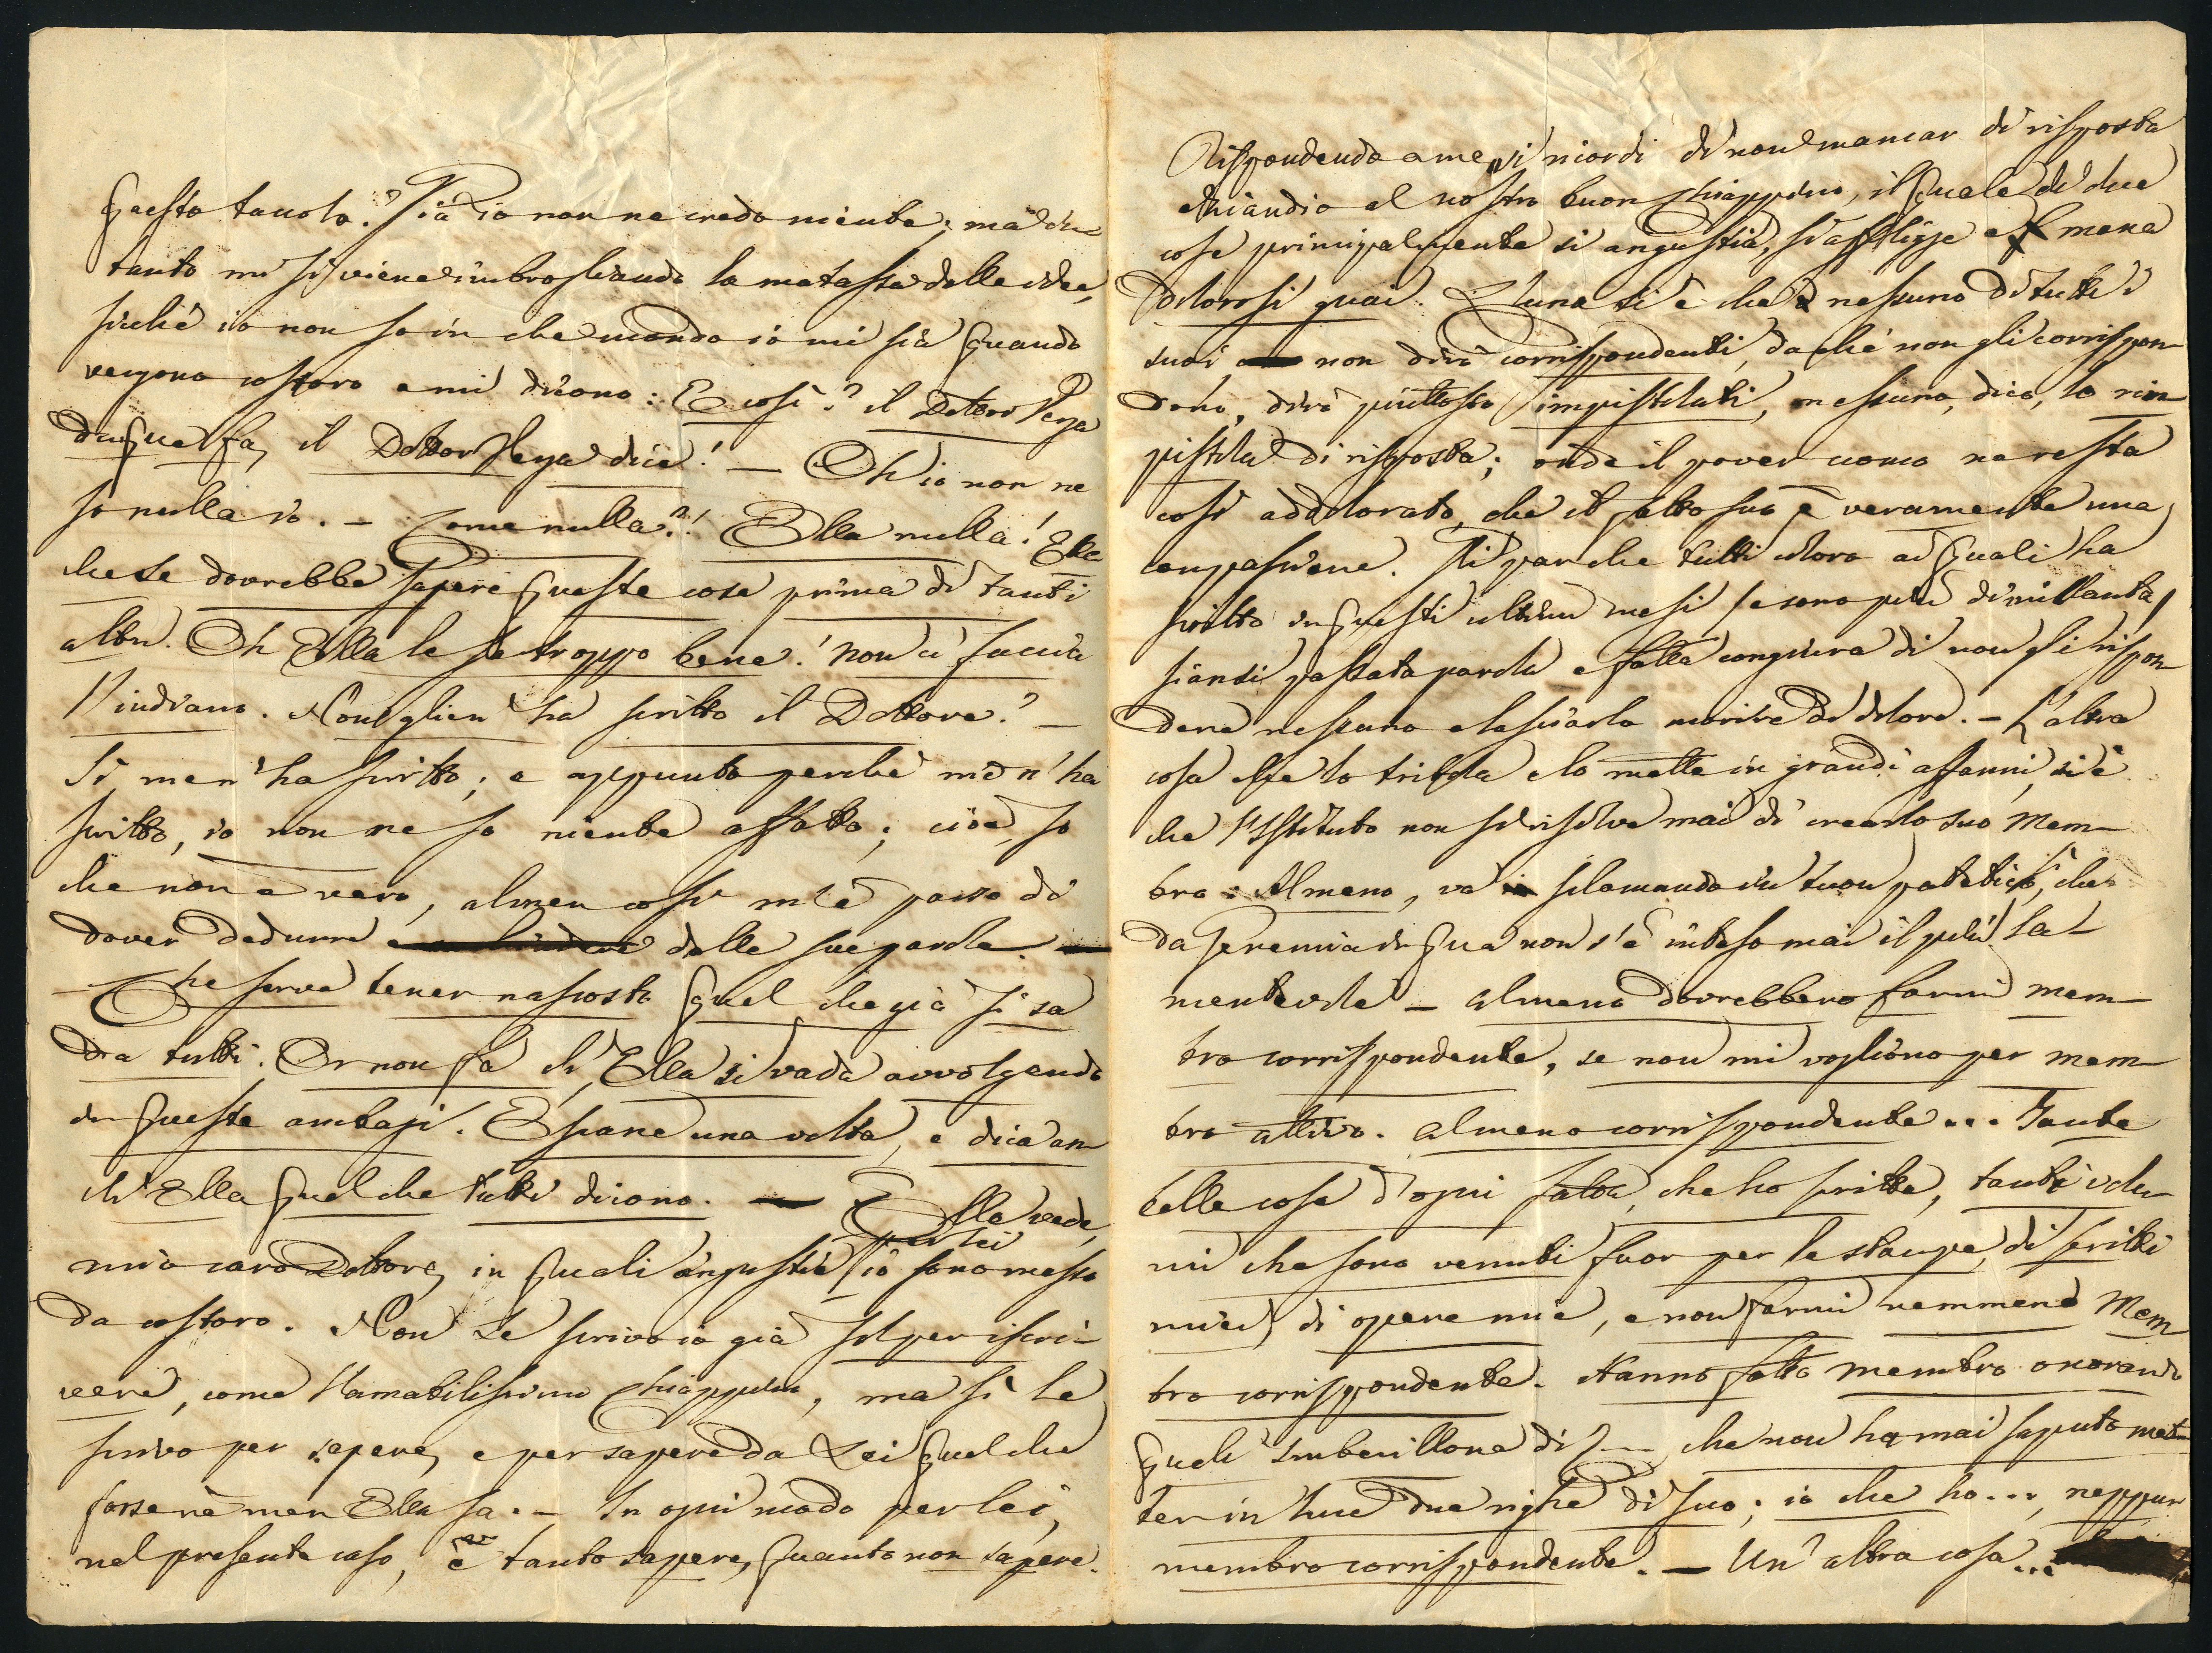 questa tavola? Già io non ne credo niente; ma in
tanto mi si viene imbrogliando la matassa delle idee,
sicchè io non so in che mondo io mi sia quando
vengono costoro e mi dicono: E così? il Dottor Nega
dunque fa, il Dottor Nega dice! — Oh io non ne
so nulla io. — Come nulla?! Ella nulla! Ella
che le dovrebbe sapere queste cose prima di tanti
altri. Oh Ella le sa troppo bene! Non ci faccia
l'indiano. Non glien' ha scritto il Dottore? —
Sì, me n' ha scritto; e appunto perchè me n' ha
scritto, io non ne so niente affatto; cioè, so
che non è vero, almen così m'è parso di
dover dedurre dalle sue parole.
— Che serve tener nascosto quel che già si sa
da tutti. Or non fa ch' Ella si vada avvolgendo
in queste ambagi. Escane una volta, e dica an
ch' Ella quel che tutti dicono. — Ella vede,
mio caro Dottore, in quali angustie per lei io sono messo
da costoro. Non Le scrivo io già sol per iscri-
vere, come l'amabilissimo Chiappino, ma sì Le
scrivo per sapere, e per sapere da Lei quel che
forse nè men Ella sa. — In ogni modo per lei,
nel presente caso, è tanto sapere, quanto non sapere.
Rispondendo a me, si ricordi di non mancar di risposta
eziandio al nostro buon Chiappino, il quale di due
cose principalmente si angustia, si affligge e mena
dolorosi guai. L'una si è che nessuno di tutti i
suoi, non dirò corrispondenti, dachè non gli corrispon
dono, dirò piuttosto impistolati, nessuno, dico, lo rim
pistola di risposta; onde il pover uomo ne resta
così addolorato, che il fatto suo è veramente una
compassione. Gli par che tutti coloro ai quali ha
scritto in questi ultimi mesi (e sono più di millanta)
siansi passata parola e fatta congiura di non gli rispon
dere nessuno e lasciarlo morire di dolore. — L'altra
cosa che lo tribola e lo mette in grandi affanni, si è
che l'Istituto non si risolve mai di crearlo suo Mem-
bro. Almeno, va sclamando in tuon patetico, sì che
da Geremia in qua non s'è inteso mai il più la-
mentevole — almeno dovrebbero farmi mem-
bro corrispondente, se non mi vogliono per mem-
bro attivo. Almeno corrispondente... Tante
belle cose d'ogni fatta, che ho scritte, tanti volu
mi che sono venuti fuor per le stampe, di scritti
miei, di opere mie, e non farmi nemmeno Mem
bro corrispondente. Hanno fatto membro onorario
quell' imbecillone di Z— che non ha mai saputo met-
ter in luce due righe di suo; io che ho..., neppur
membro corrispondente. — Un' altra cosa...